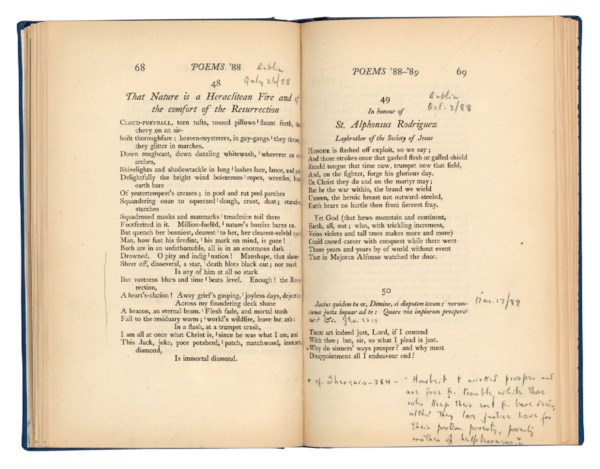 68 POEMS '88 Dublin
July 26/88
48
That Nature is a Heraclitean Fire and of
the comfort of the Resurrection
CLOUD-PUFFBALL, torn tufts, tossed pillows ' flaunt forth, th
chevy on an air-
built thoroughfare: heaven-roysterers, in gay-gangs ' they throng
they glitter in marches.
Down roughcast, down dazzling whitewash, ' wherever an e
arches,
Shivelights and shadowtackle in long ' lashes lace, lance, and
Delightfully the bright wind boisterous ' ropes, wrestles,
earth bare
Of yestertempest's creases; in pool and rut peel parches
Squandering ooze to squeezed ' dough, crust, dust; stanches
starches
Squadroned masks and manmarks ' treadmire toil there
Footfretted in it. Million-fuelèd, ' nature's bonfire burns on.
But quench her bonniest, dearest ' to her, her clearest-selvèd
Man, how fast his firedint, ' his mark on mind, is gone!
Both are in an unfathomable, all is in an enormous dark
Drowned. O pity and indig ' nation! Manshape, that shone
Sheer off, disseveral, a star, ' death blots black out; nor mark
Is any of him at all so stark
But vastness blurs and time ' beats level. Enough! the Resur-
rection,
A heart's-clarion! Away grief's gasping, ' joyless days, dejection
Across my foundering deck shone
A beacon, an eternal beam. ' Flesh fade, and mortal trash
Fall to the residuary worm; ' world's wildfire, leave but ash:
In a flash, at a trumpet crash,
I am all at once what Christ is, ' since he was what I am, and
This Jack, joke, poor potsherd, ' patch, matchwood, immortal
diamond,
Is immortal diamond.
POEMS '88–'89 69
Dublin
Oct. 3/88
49
In honour of
St. Alphonsus Rodriguez
Laybrother of the Society of Jesus
HONOUR is flashed off exploit, so we say;
And those strokes once that gashed flesh or galled shield
Should tongue that time now, trumpet now that field,
And, on the fighter, forge his glorious day.
On Christ they do and on the martyr may;
But be the war within, the brand we wield
Unseen, the heroic breast not outward-steeled,
Earth hears no hurtle then from fiercest fray.
Yet God (that hews mountain and continent,
Earth, all, out; who, with trickling increment,
Veins violets and tall trees makes more and more)
Could crowd career with conquest while there went
Those years and years by of world without event
That in Majorca Alfonso watched the door.
50
Justus quidem tu es, Domine, si disputem tecum: verum-
tamen justa loquar ad te: Quare via impiorum prosperatur
Mar. 17/89
THOU art indeed just, Lord, if I contend
With thee; but, sir, so what I plead is just.
Why do sinners' ways prosper? and why must
Disappointment all I endeavour end?
* cf. Theognis - 384 -
wicked prosper and
are free fr. trouble while those
who keep their fr. base
altho' they love justice have for
their portion poverty, poverty
mother of helplessness